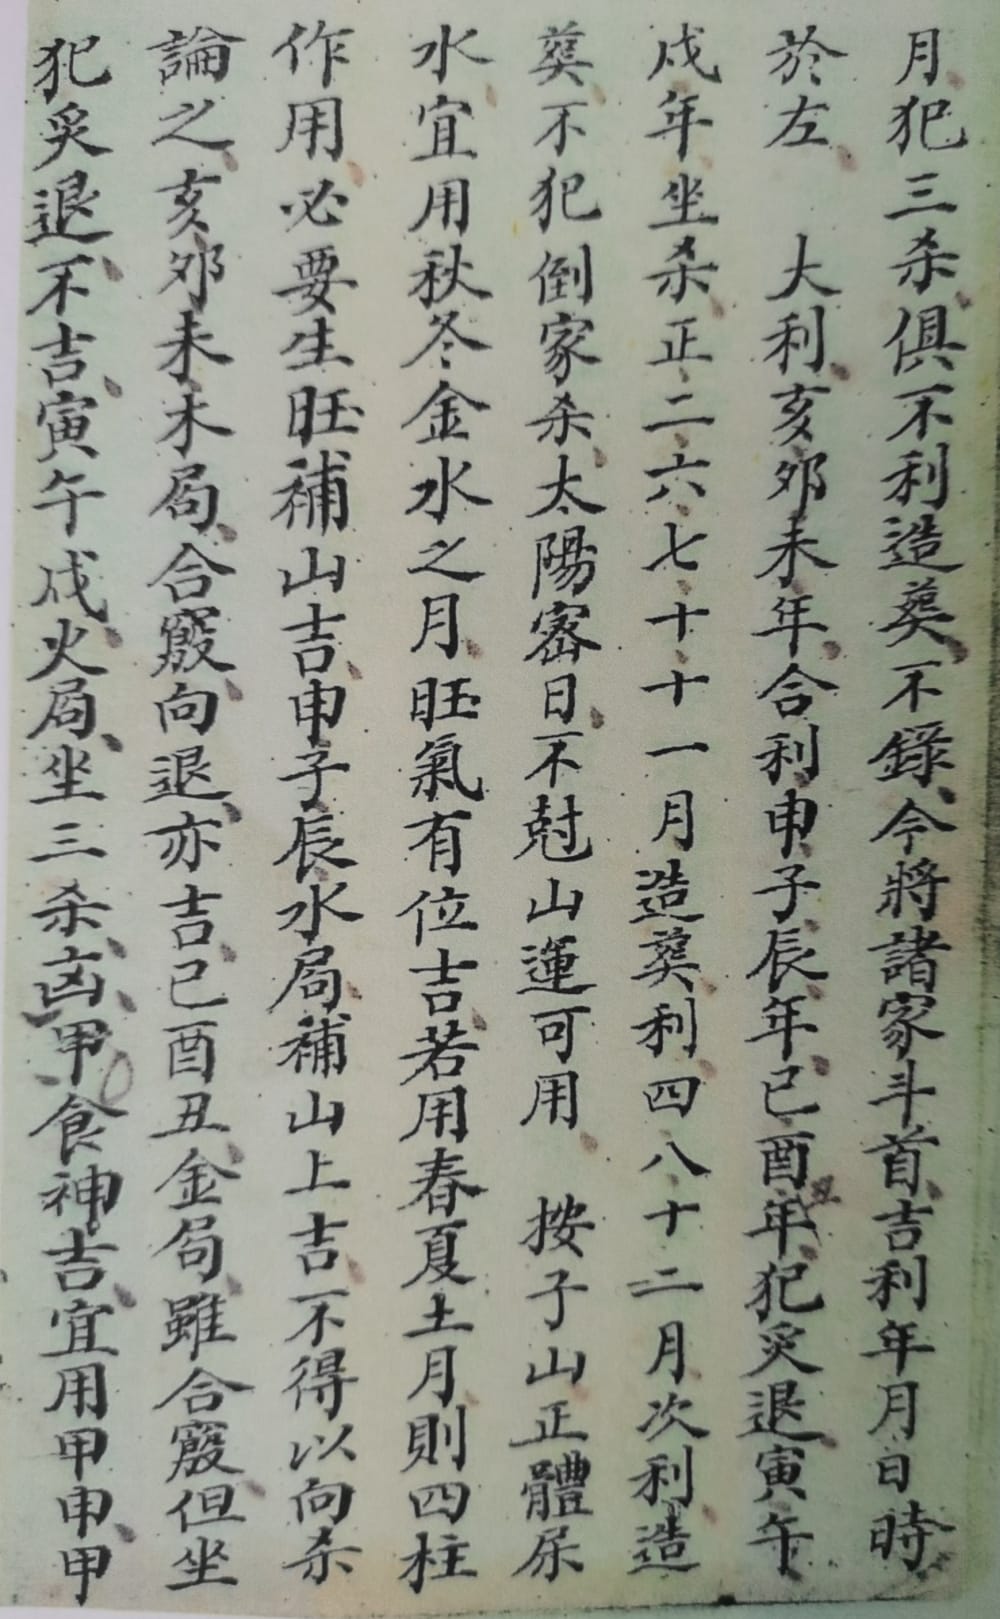 月犯三杀俱不利造葬不錄今將諸家斗首吉利年月日時
於左 大利亥夘未年合利申子辰年巳酉丑年犯灸退寅午
戍年坐杀正二六七十十一月造葬利四八十二月次利造
葬不犯倒家杀太陽宻日不尅山運可用 按子山正體屬
水宜用秋冬金水之月旺氣有位吉若用春夏土月則四柱
作用必要生旺補山吉申子辰水局補山上吉不得以向杀
論之亥夘未木局合廢向退亦吉巳酉丑金局雖合廢但坐
犯灸退不吉寅午戍火局坐三杀凶甲食神吉宜用甲申甲